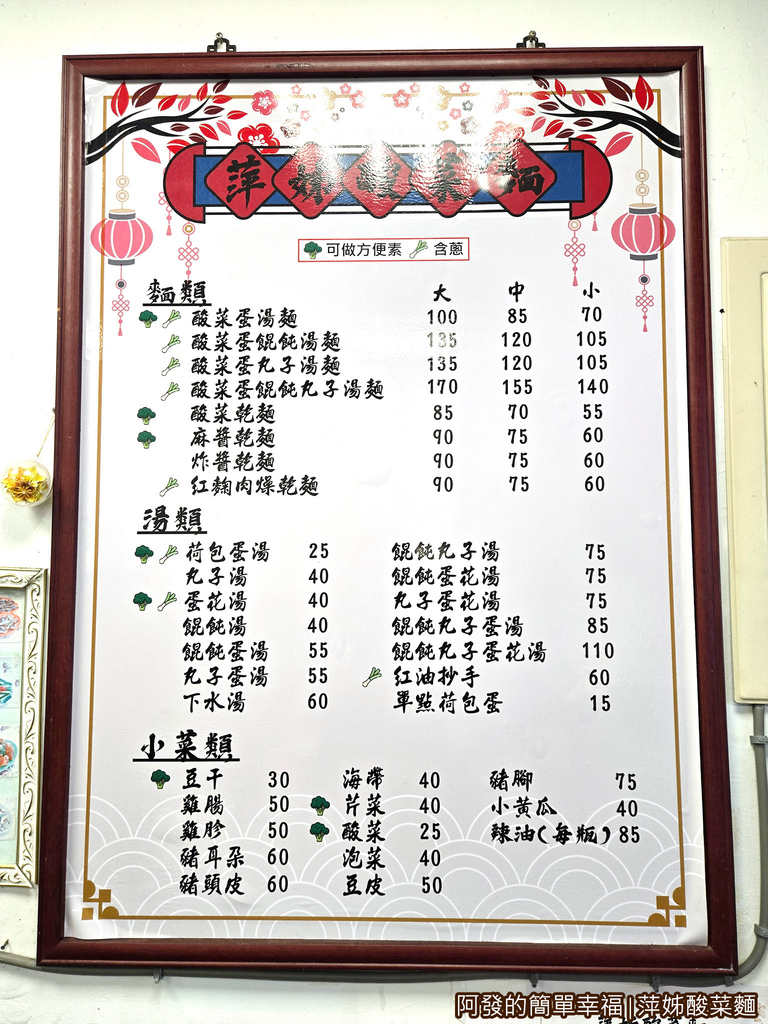 萍姊酸菜麵
可做方便素 含蔥
麵類 大 中 小
酸菜蛋湯麵 100 85 70
酸菜蛋餛飩湯麵 135 120 105
酸菜蛋丸子湯麵 135 120 105
酸菜蛋餛飩丸子湯麵 170 155 140
酸菜乾麵 85 70 55
麻醬乾麵 90 75 60
炸醬乾麵 90 75 60
紅麴肉燥乾麵 90 75 60
湯類
荷包蛋湯 25 餛飩丸子湯 75
丸子湯 40 餛飩蛋花湯 75
蛋花湯 40 丸子蛋花湯 75
餛飩湯 40 餛飩丸子蛋湯 85
餛飩蛋湯 55 餛飩丸子蛋花湯 110
丸子蛋湯 55 紅油抄手 60
下水湯 60 單點荷包蛋 15
小菜類
豆干 30 海帶 40 豬腳 75
雞腸 50 芹菜 40 小黃瓜 40
雞胗 50 酸菜 25 辣油(每瓶) 85
豬耳朵 60 泡菜 40
豬頭皮 60 豆皮 50
阿發的簡單幸福||萍姊酸菜麵